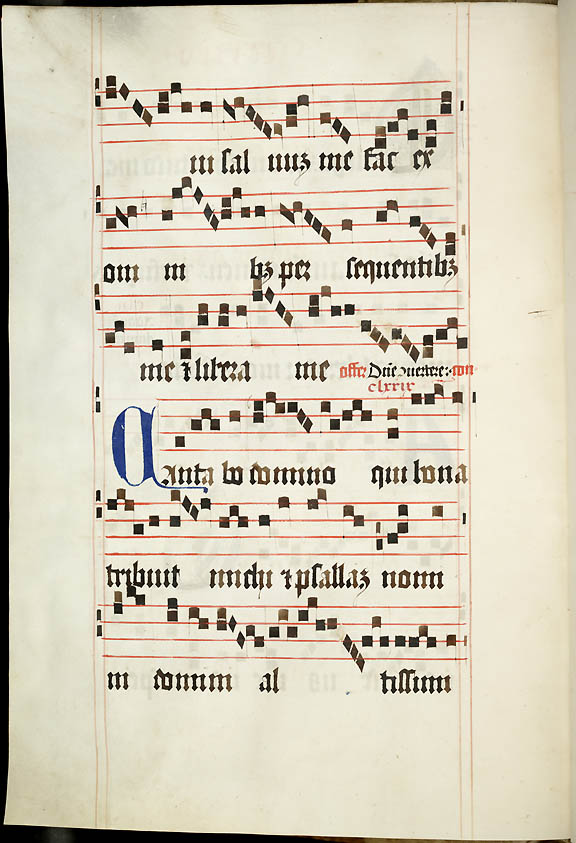 in sal uuz me fac ex
om ni bz per sequentibz
me ⁊ libera me offer Dñe
clxxix
Canta bo domino qui bona
tribuit michi ⁊ psallaz nomi
ni domini al tissimi